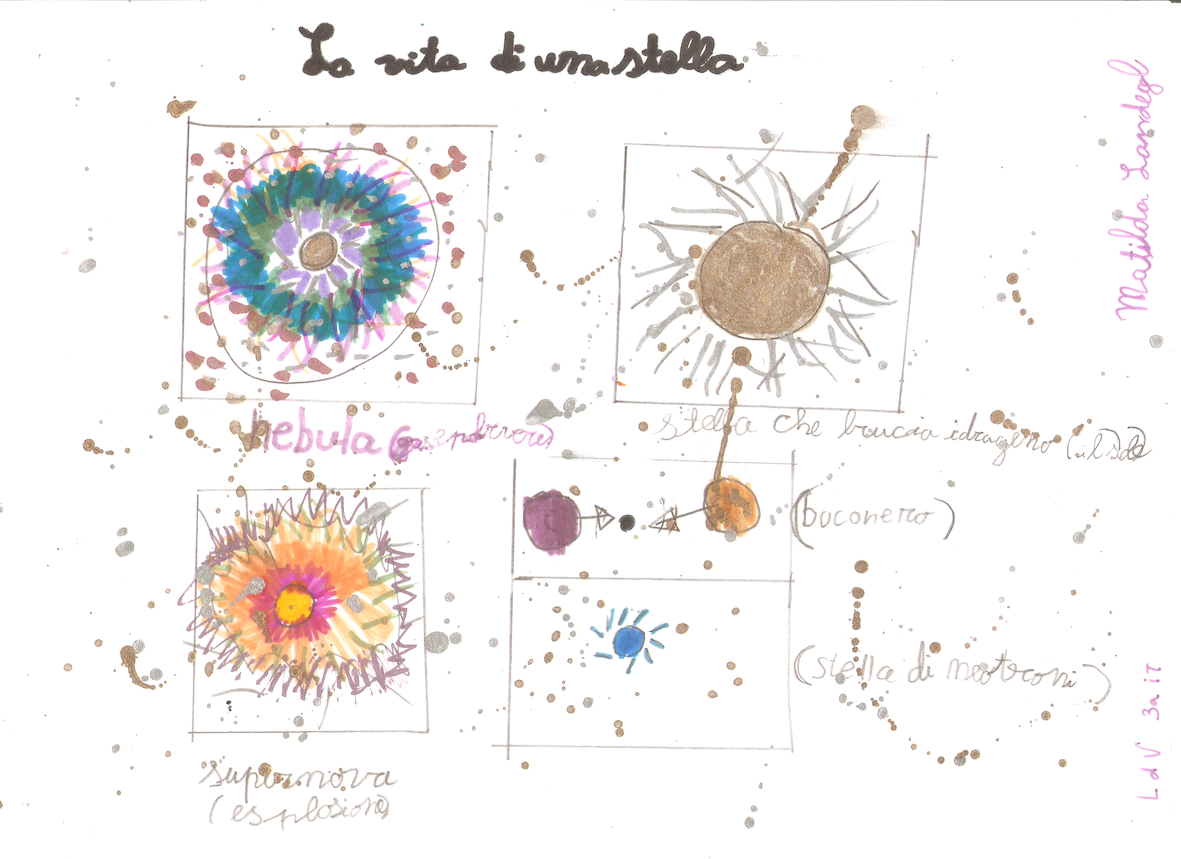 La vita di una stella
nebula (gas e polvere)
stella che brucia idrogeno (il sole)
(buco nero)
supernova
(esplosione)
(stella di neutroni)
Matilda Landegl
L d V 3a it